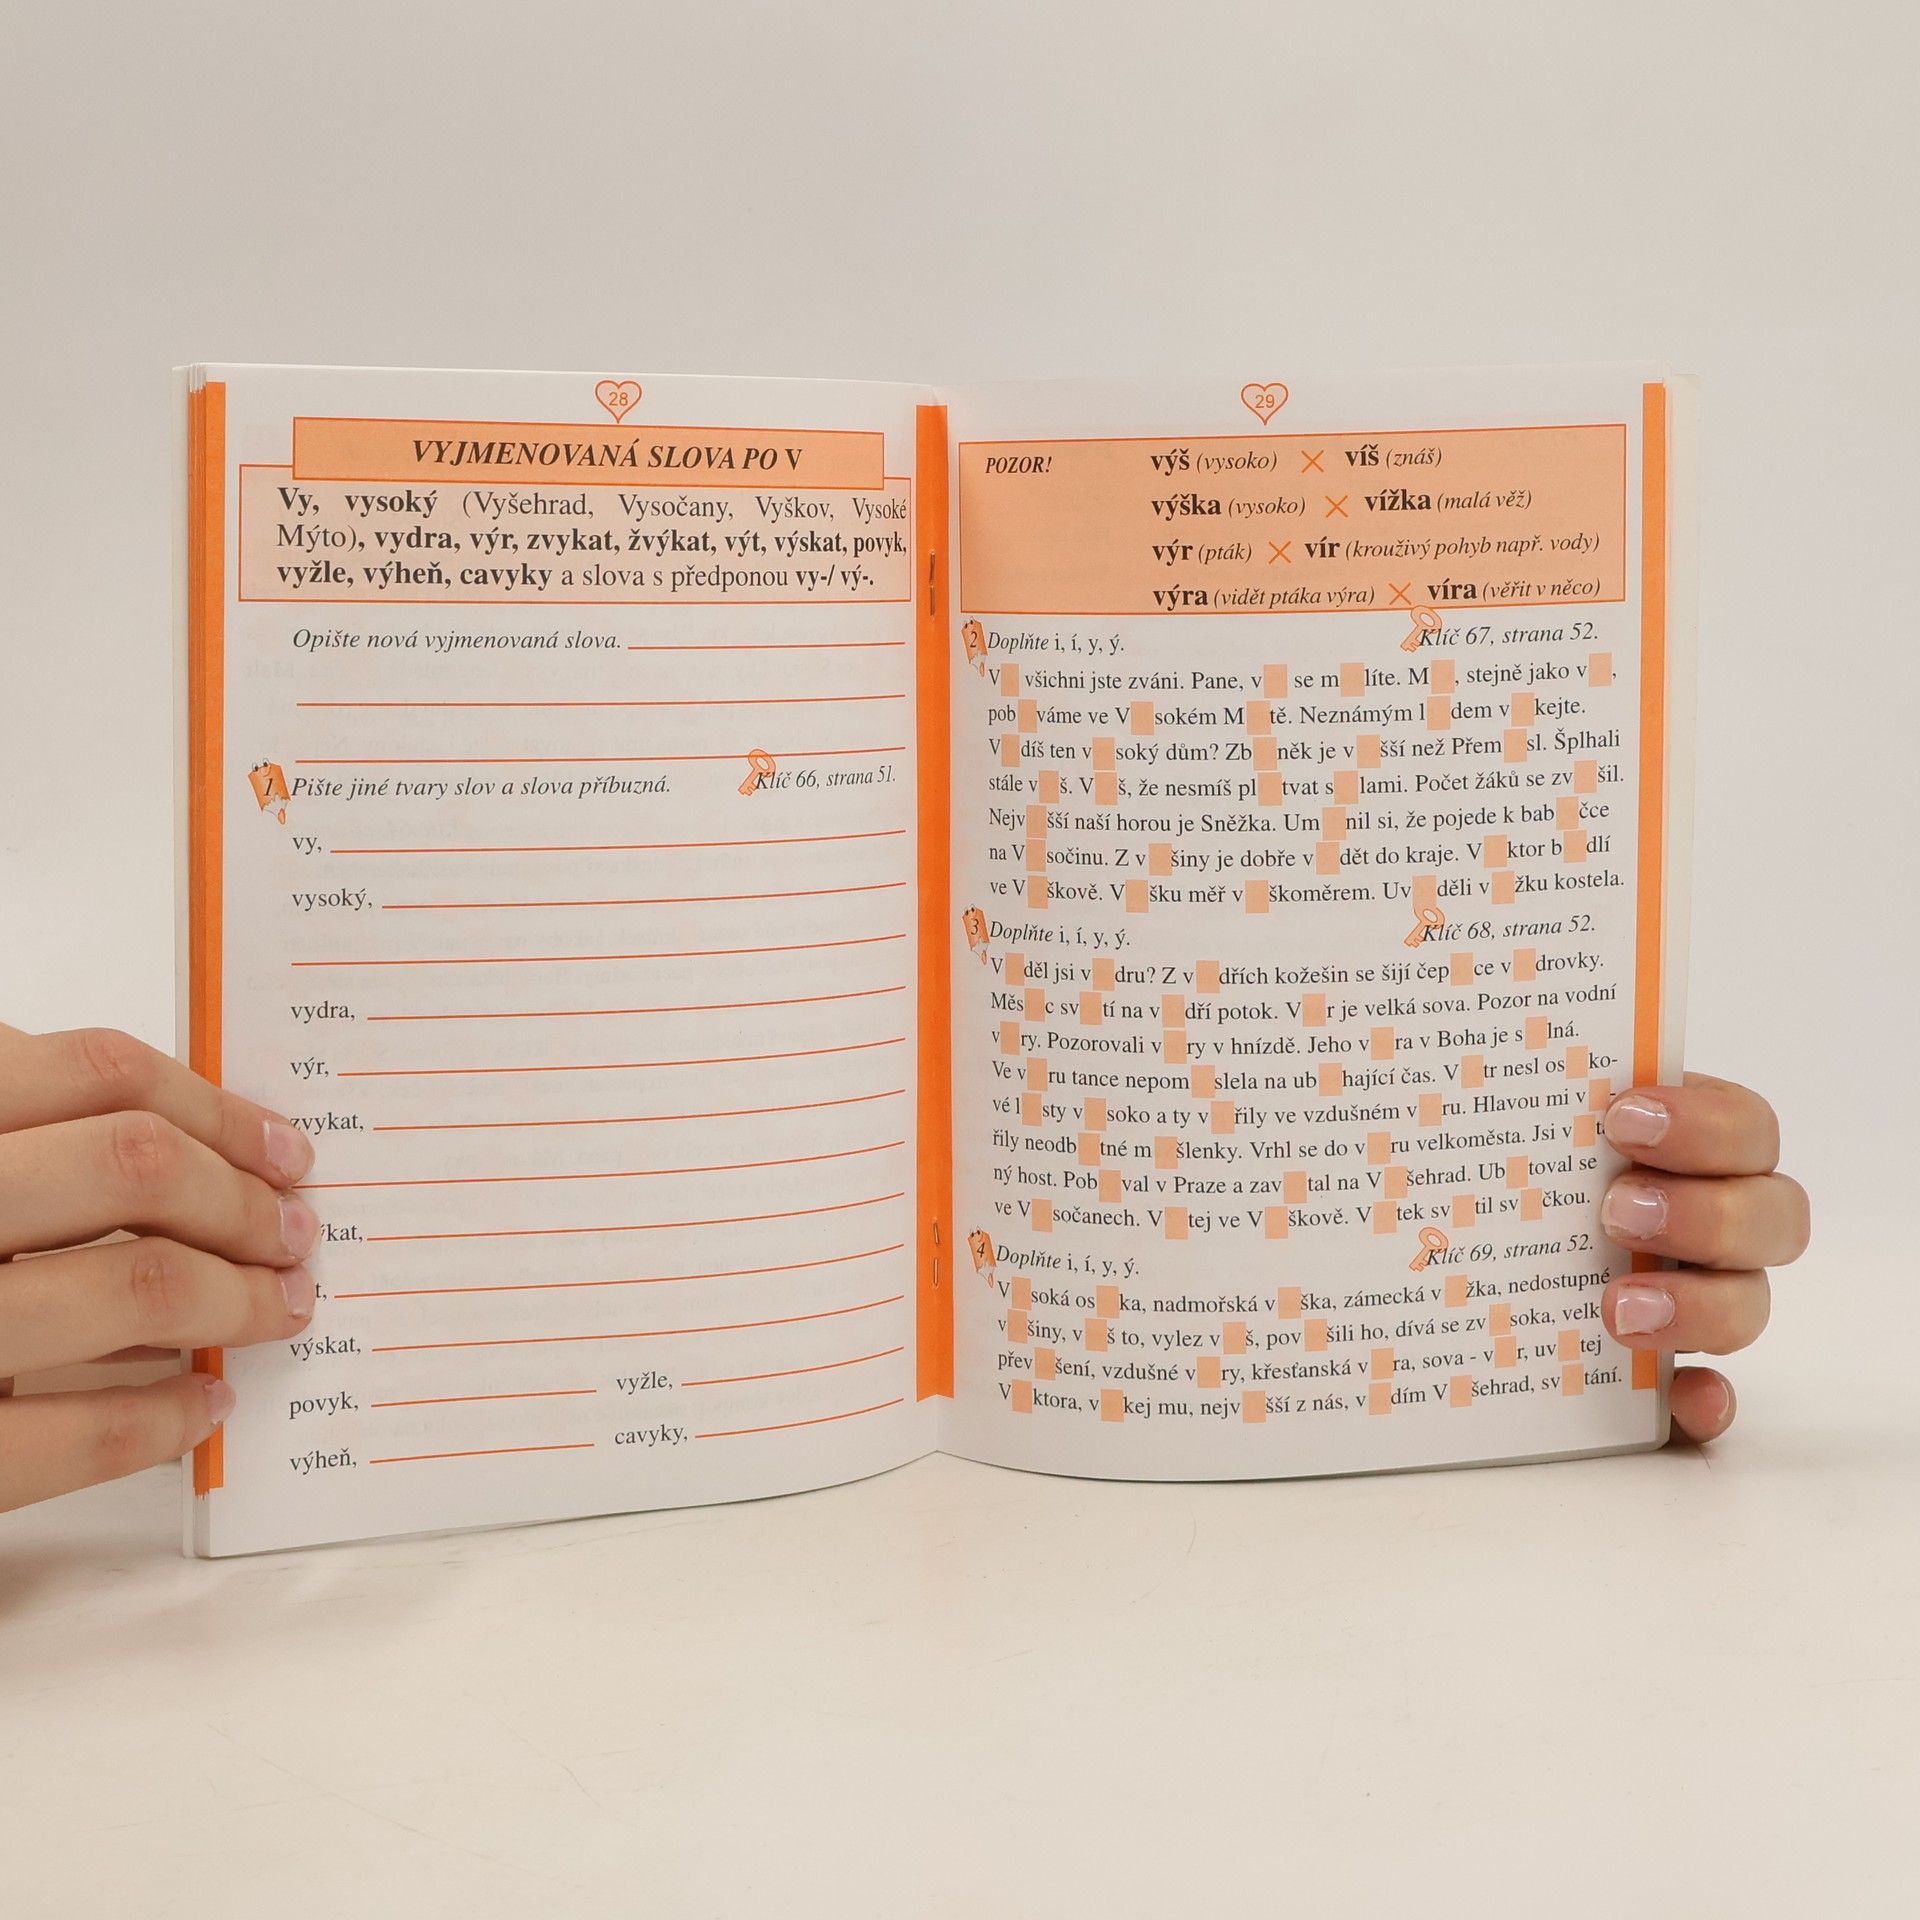 28
VYJMENOVANÁ SLOVA PO V
Vy, vysoký (Vyšehrad, Vysočany, Vyškov, Vysoké
Mýto), vydra, výr, zvykat, žvýkat, výt, výskat, povyk,
vyžle, výheň, cavyky a slova s předponou vy-/ vý-.
Opište nová vyjmenovaná slova.
1 Pište jiné tvary slov a slova příbuzná. Klíč 66, strana 51.
vy,
vysoký,
vydra,
výr,
zvykat,
ýkat,
t,
výskat,
povyk, vyžle,
výheň, cavyky,
29
POZOR! výš (vysoko) × víš (znáš)
výška (vysoko) × vížka (malá věž)
výr (pták) × vír (krouživý pohyb např. vody)
výra (vidět ptáka výra) × víra (věřit v něco)
2 Doplňte i, í, y, ý. Klíč 67, strana 52.
V všichni jste zváni. Pane, v se m líte. M , stejně jako v ,
pob váme ve V sokém M tě. Neznámým l dem v kejte.
V díš ten v soký dům? Zb něk je v šší než Přem sl. Šplhali
stále v š. V š, že nesmíš pl tvat s lami. Počet žáků se zv šil.
Nejv šší naší horou je Sněžka. Um nil si, že pojede k bab čce
na V sočinu. Z v šiny je dobře v dět do kraje. V ktor b dlí
ve V škově. V šku měř v škoměrem. Uv děli v žku kostela.
3 Doplňte i, í, y, ý. Klíč 68, strana 52.
V děl jsi v dru? Z v dřích kožešin se šijí čep ce v drovky.
Měs c sv tí na v dří potok. V r je velká sova. Pozor na vodní
v ry. Pozorovali v ry v hnízdě. Jeho v ra v Boha je s lná.
Ve v ru tance nepom slela na ub hající čas. V tr nesl os ko-
vé l sty v soko a ty v řily ve vzdušném v ru. Hlavou mi v -
řily neodb tné m šlenky. Vrhl se do v ru velkoměsta. Jsi v ta
ný host. Pob val v Praze a zav tal na V šehrad. Ub toval se
ve V sočanech. V tej ve V škově. V tek sv til sv čkou.
4 Doplňte i, í, y, ý. Klíč 69, strana 52.
V soká os ka, nadmořská v ška, zámecká v žka, nedostupné
v šiny, v š to, vylez v š, pov šili ho, dívá se zv soka, velk
přev šení, vzdušné v ry, křesťanská v ra, sova - v r, uv tej
V ktora, v kej mu, nejv šší z nás, v dím V šehrad, sv tání.